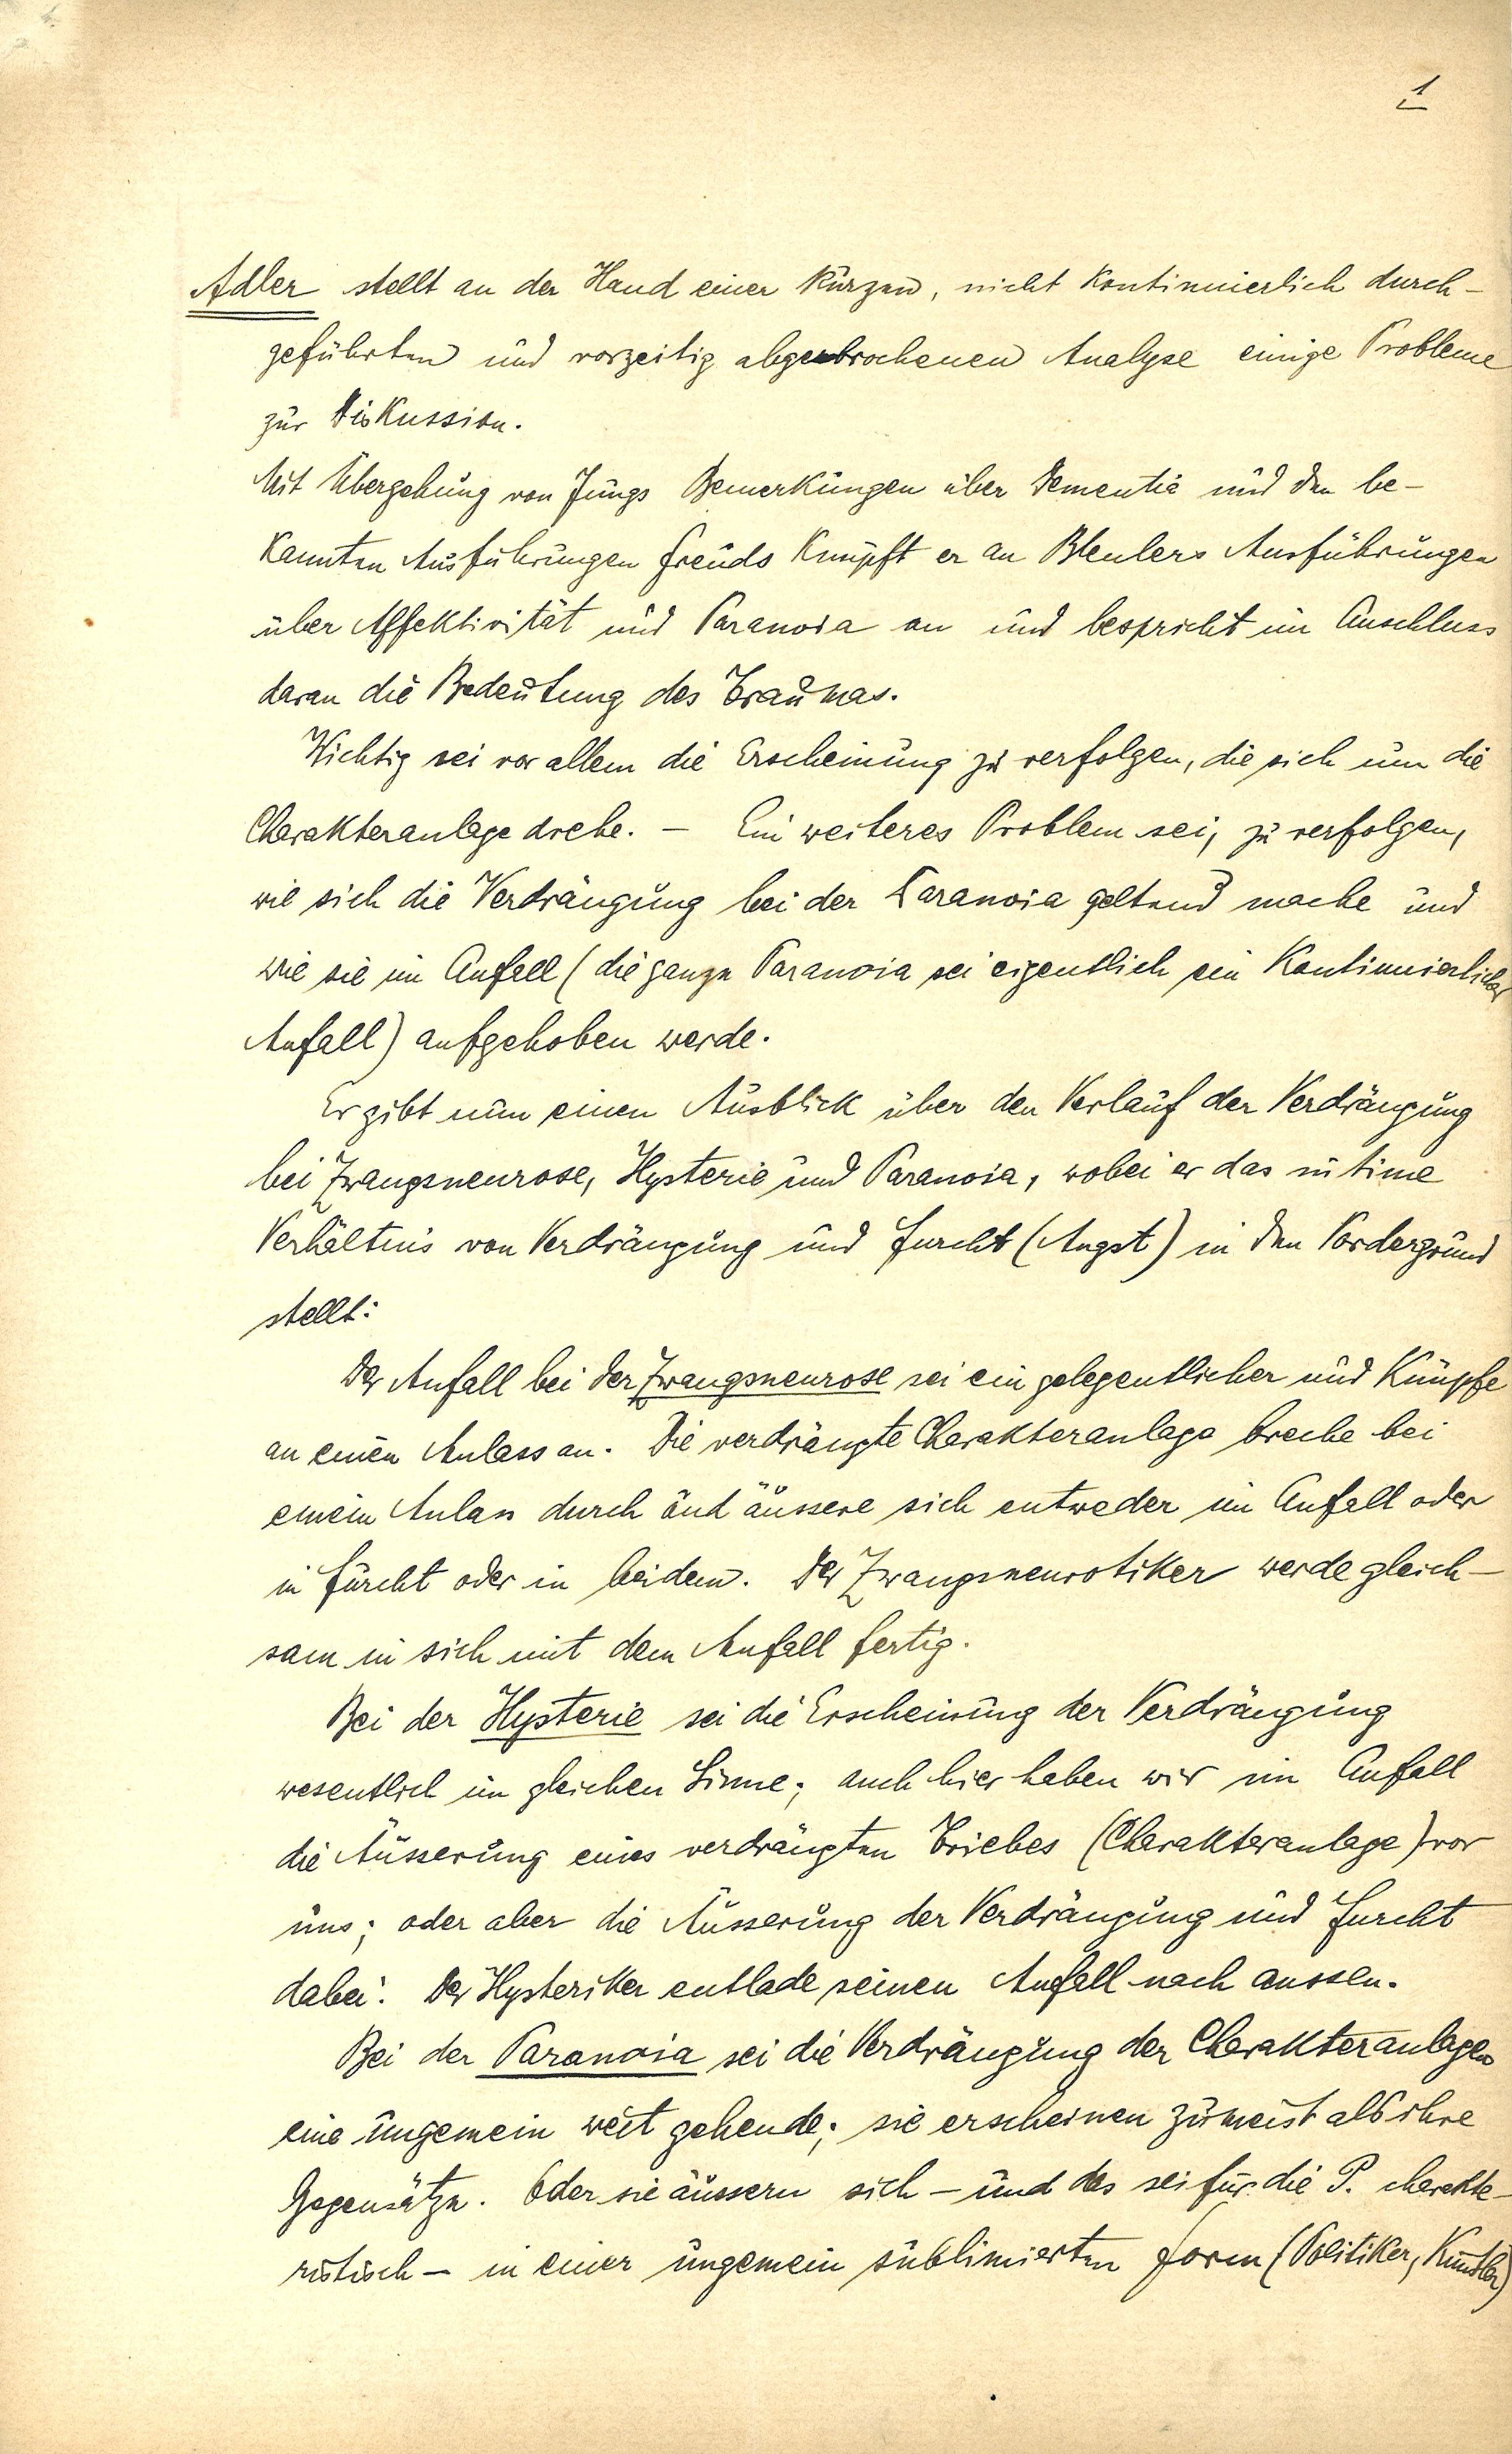 1
Adler stellt an der Hand einer kurzen, nicht kontinuierlich durch-
geführten und vorzeitig abgebrochenen Analyse einige Probleme
zur Diskussion.
Mit Übergehung von Jungs Bemerkungen über Dementia und den be-
kannten Ausführungen Freuds knüpft er an Bleulers Ausführungen
über Affektivität und Paranoia an und bespricht im Anschluss
daran die Bedeutung des Traumas.
Wichtig sei vor allem die Erscheinung zu verfolgen, die sich um die
Charakteranlage drehe. – Ein weiteres Problem sei, zu verfolgen,
wie sich die Verdrängung bei der Paranoia geltend mache und
wie sie im Anfall (die ganze Paranoia sei eigentlich ein kontinuierlicher
Anfall) aufgehoben werde.
Er gibt nun einen Ausblick über den Verlauf der Verdrängung
bei Zwangsneurose, Hysterie und Paranoia, wobei er das intime
Verhältnis von Verdrängung und Furcht (Angst) in den Vordergrund
stellt:
Der Anfall bei der Zwangsneurose sei ein gelegentlicher und knüpfe
an einen Anlass an. Die verdrängte Charakteranlage breche bei
einem Anlass durch und äussere sich entweder im Anfall oder
in Furcht oder in beidem. Der Zwangsneurotiker werde gleich-
sam in sich mit dem Anfall fertig.
Bei der Hysterie sei die Erscheinung der Verdrängung
wesentlich im gleichen Sinne; auch hier haben wir im Anfall
die Äusserung eines verdrängten Triebes (Charakteranlage) vor
uns; oder aber die Äusserung der Verdrängung und Furcht
dabei. Der Hysteriker entlade seinen Anfall nach aussen.
Bei der Paranoia sei die Verdrängung der Charakteranlagen
eine ungemein weit gehende; sie erscheinen zumeist als ihre
Gegensätze. Oder sie äussern sich – und das sei für die P. charakte-
ristisch – in einer ungemein sublimierten Form (Politiker, Künstler)